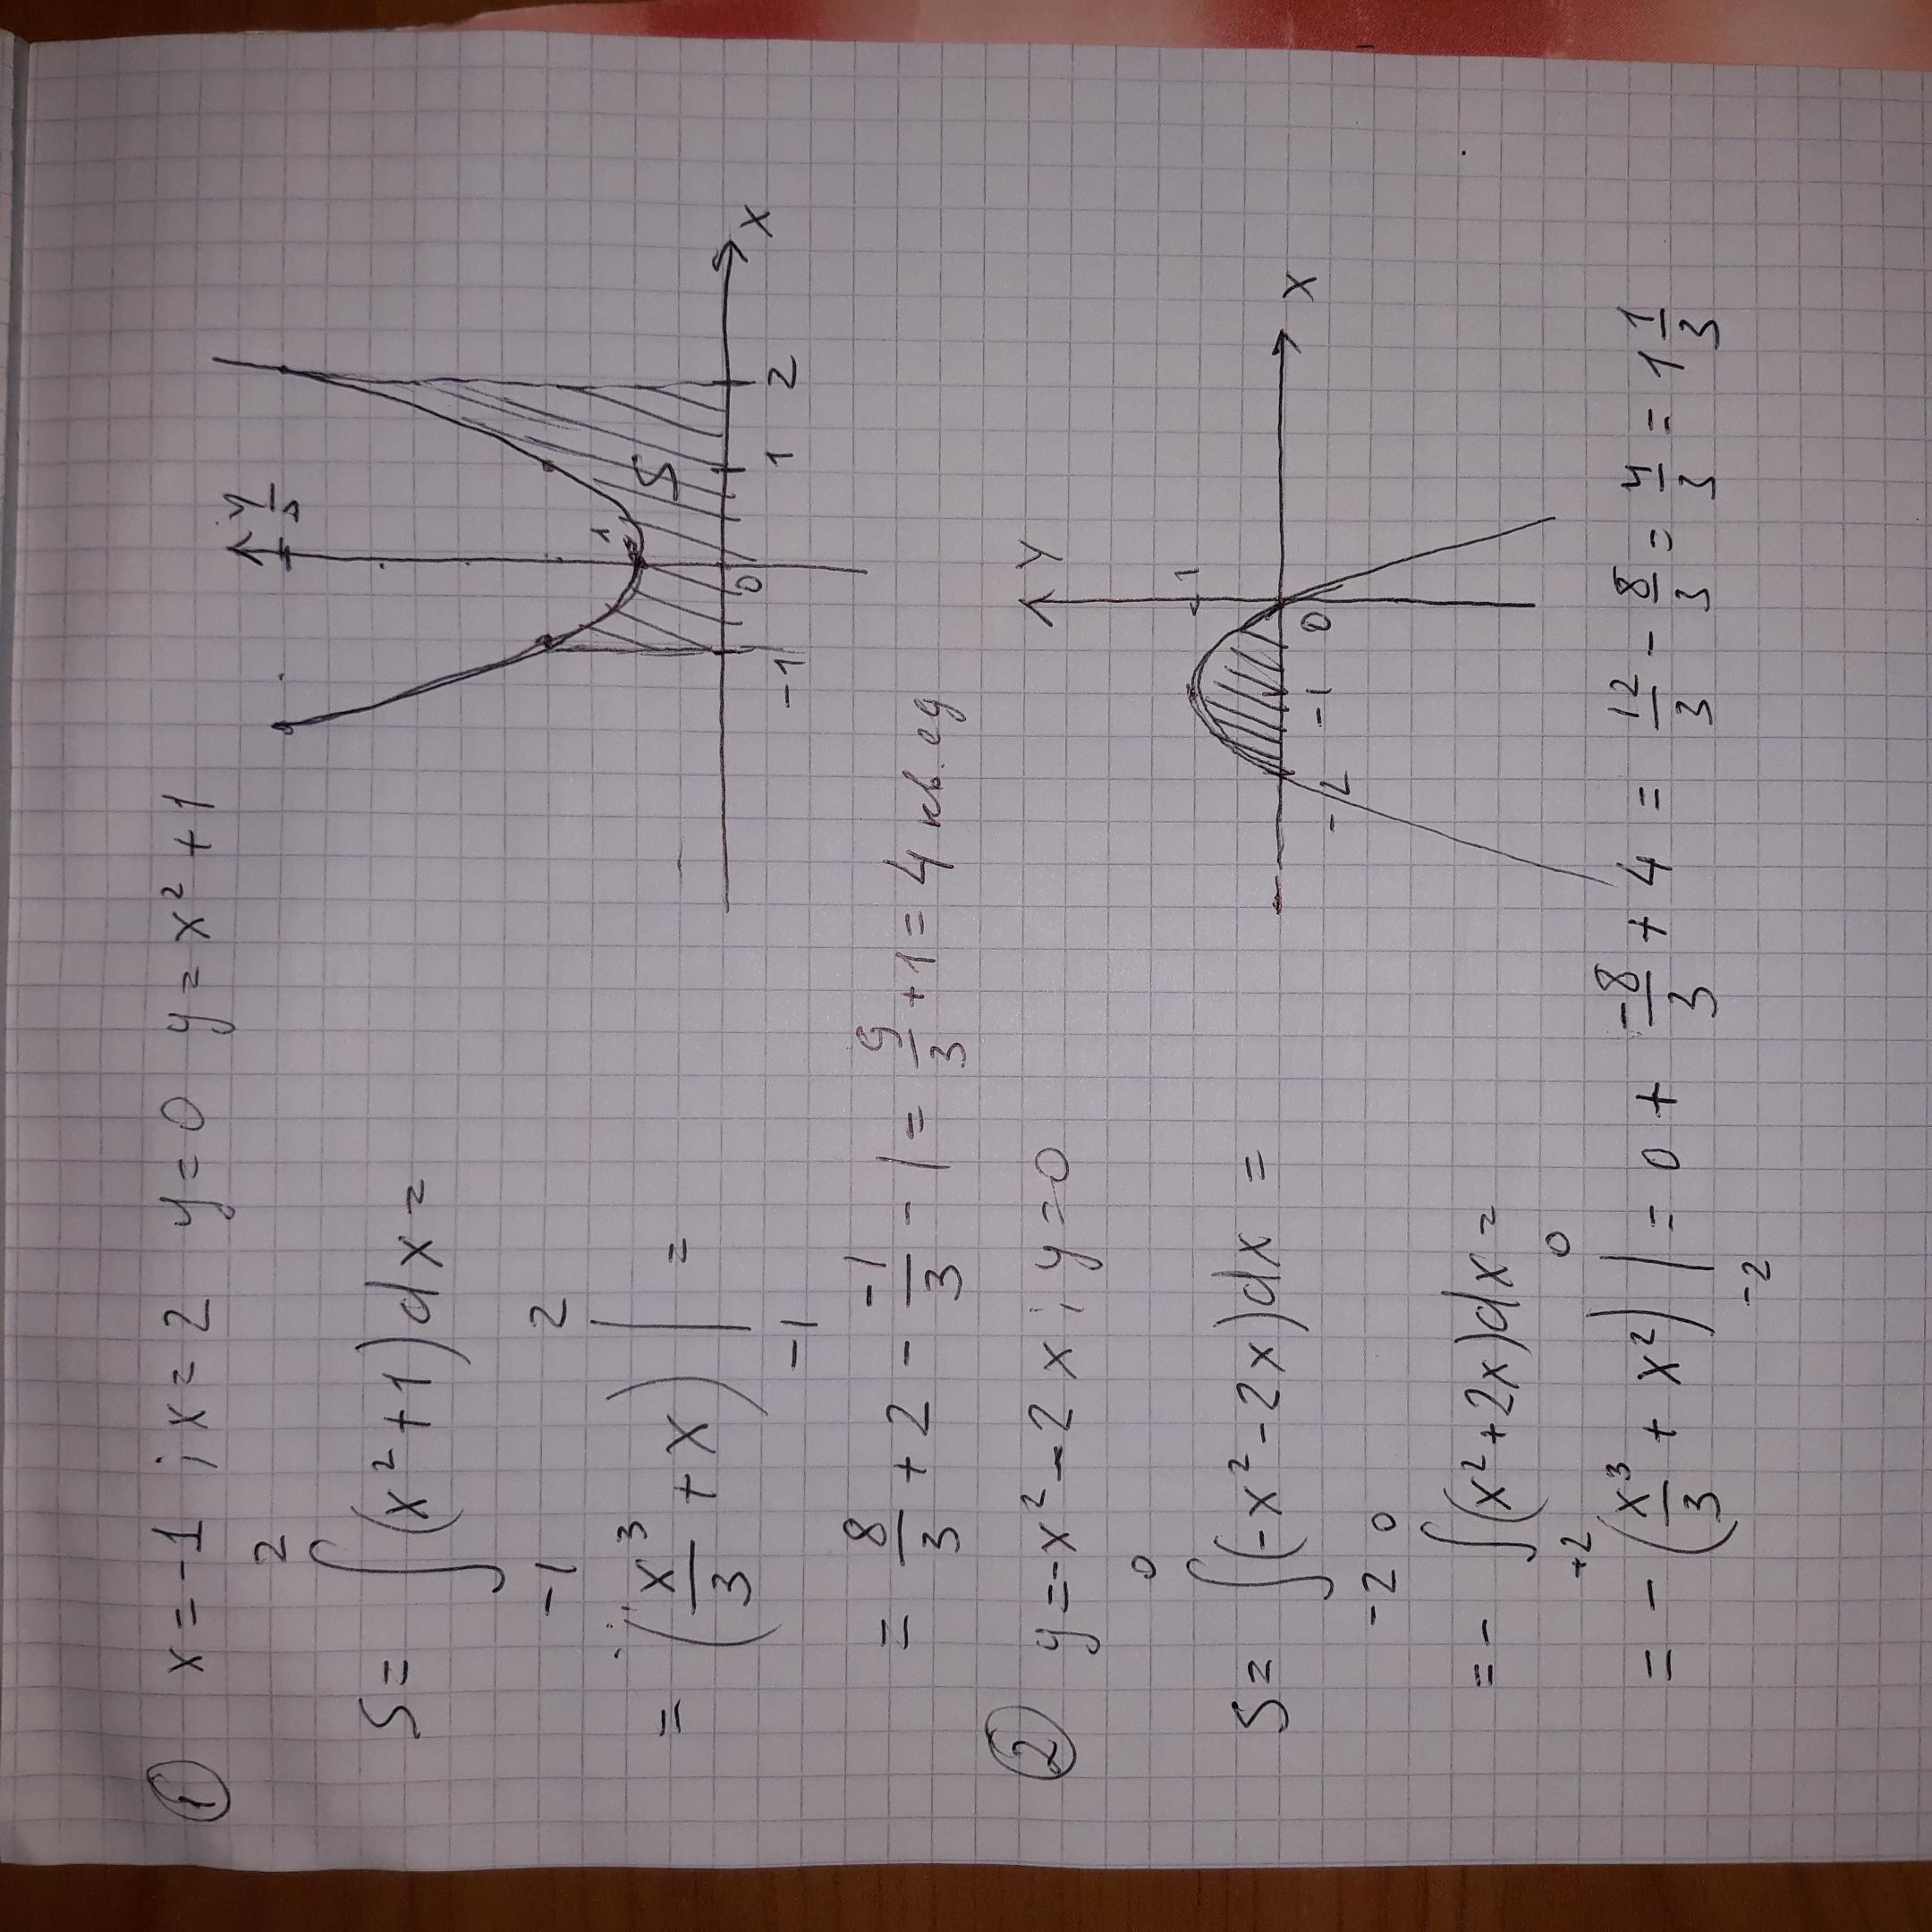 ① x=-1 ; x=2 y=0 y=x²+1
S= ∫₋₁² (x²+1)dx=
= (x³/3 + x) |₋₁² =
= 8/3 + 2 - -1/3 - 1 = 9/3 + 1 = 4 кв. ед
y
5
1
S
-1 0 1 2 x
② y=-x²-2x ; y=0
S= ∫₋₂⁰ (-x²-2x)dx =
=- ∫₊₂⁰ (x²+2x)dx=
= - (x³/3 + x²) |₋₂⁰ = 0 + -8/3 + 4 = 12/3 - 8/3 = 4/3 = 1 1/3
y
1
-2 -1 0 x